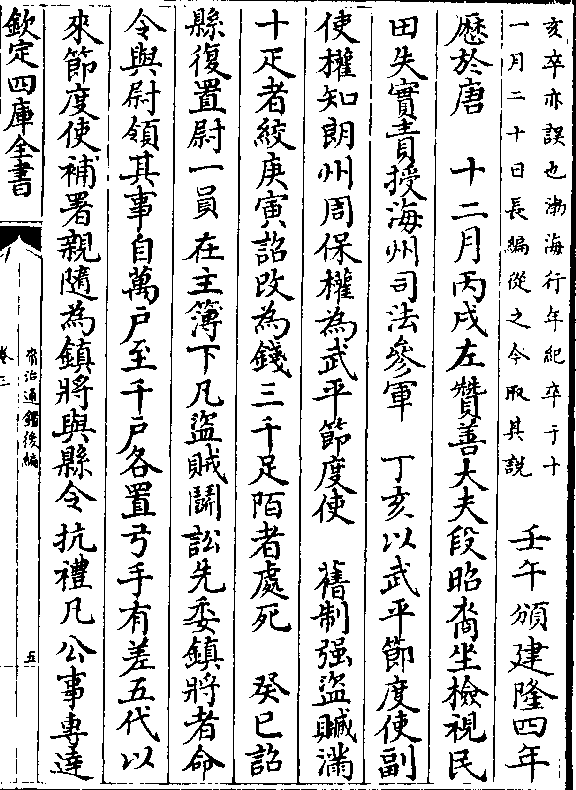 亥卒亦誤也渤海行年紀卒于十
一月二十日長編從之今取其說
壬午頒建隆四年
厯於唐　十二月丙戌左贊善大夫段昭裔坐檢視民
田失實責授海州司法參軍　丁亥以武平節度使副
使權知朗州周保權為武平節度使　舊制强盜贓滿
十疋者絞庚寅詔改為錢三千足陌者處死　癸巳詔
縣復置尉一員在主簿下凡盜賊鬭訟先委鎮將者命
令與尉領其事自萬戸至千戸各置弓手有差五代以
來節度使補署親隨為鎮將與縣令抗禮凡公事專達
欽定四庫全書
資治通鑑後編
卷三
五